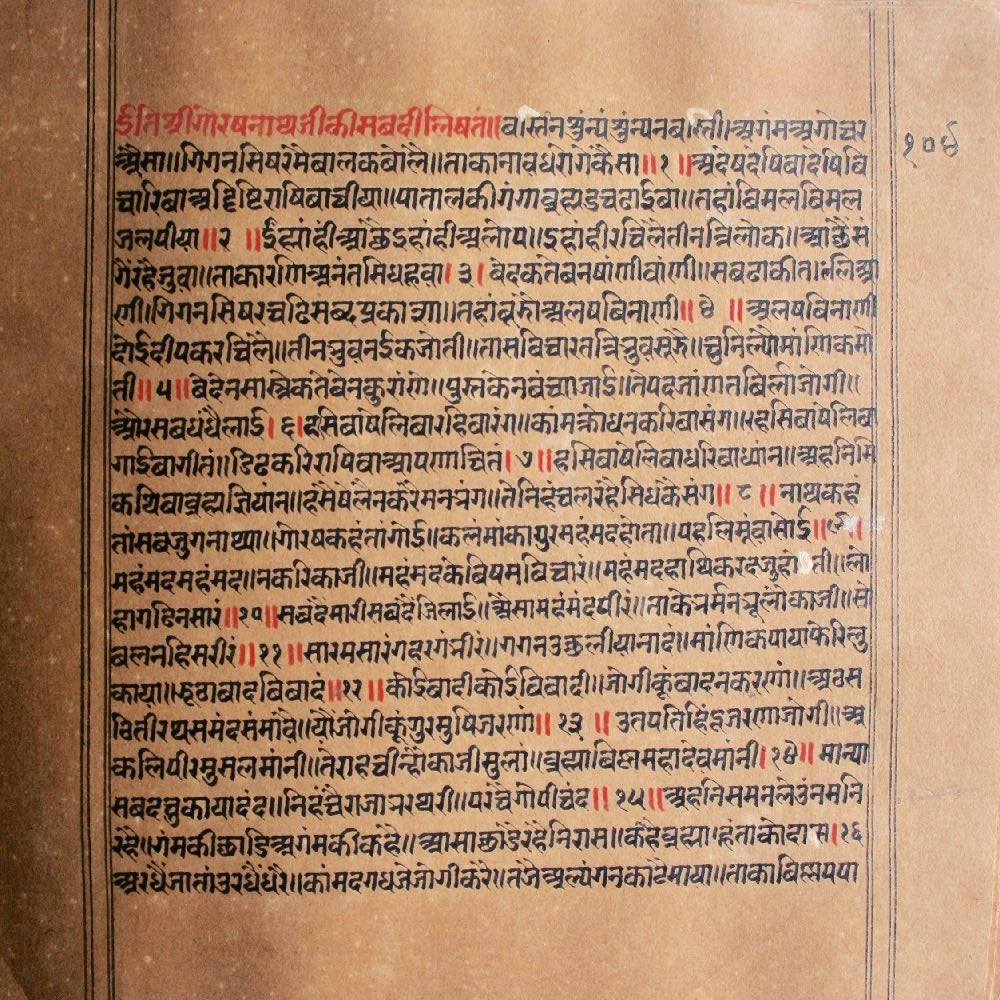 ईति श्री गोरषनाथजी की सबदी लिषतं ॥ बस्ति न सुंन्यं सुंन्यं न बस्ती ॥ अगंम अगोचर
१०४
अैसा ॥ गिगन सिषर मै बालक बोलै ॥ ताका नांव धरौगे कैसा ॥ १ ॥ अदेषि देषिबा देषि बि
चारिबा अद्रिष्टि राषिबा चीया ॥ पाताल की गंगा ब्रह्मंड चढाईबा ॥ तहां बिमल बिमल
जल पीया ॥ २ ॥ ईहां ही आछै ईहां ही अलोप ॥ ईहां ही रचिलै तीन त्रिलोक ॥ आछै सं
गैं रहै जुवा ॥ ता कारणि अनंत सिध हूवा । ३ । बेद कतेब न षांणी बांणी ॥ सब ढाकी तलि आ
णी ॥ गिगन सिषर चढि सबद प्रकास्या ॥ तहां बूझै अलष बिनाणी ॥ ४ ॥ अलष बिनाणी
दोई दीपक रचिलै ॥ तीन भुवन ईक जोती ॥ तास बिचारत त्रिभुवन सूझै ॥ चुनिल्यौ माणिक मो
ती ॥ ५ ॥ बेदे न सास्त्रे कतेबे न कुरांणे ॥ पुस्तके न बंच्या जाई ॥ ते पद जांणत बिरला जोगी ॥
और सब धंधै लाई । ६ । हसिबा षेलिबा रहिबा रंग ॥ कांम क्रोध न करिबा संग ॥ हसिबा षेलिबा
गाईबा गीतं ॥ द्रिढ करि राषिबा आपणा चितं । ७ ॥ हसिबा षेलिबा धरिबा ध्यान ॥ अहनिसि
कथिबा ब्रह्म गियांन ॥ हसै षेलै न करै मन भंग ॥ ते निहचल रहै सिध कै संग ॥ ८ ॥ नाथ कहं
तां सब जुग नाथ्या ॥ गोरष कहंतां गोई ॥ कलमां का गुर महंमद होता ॥ पहलि मूवा सोई ॥ ९ ।
महंमद महंमद ॥ न करि काजी ॥ महंमद का बिषम बिचारं ॥ महंमद हाथि करद जु होती ॥ लो
हा गढी न सारं ॥ १० ॥ सबदै मारी सबदै जिलाई ॥ अैसा महंमद पीरं ॥ ताके भरमि न भूलो काजी ॥ सो
बल नहि सरीरं ॥ ११ ॥ सारमसारं गहर गंभीरं ॥ गगन उछलीया नादं ॥ मांणिक पाया फेरि लु
काया ॥ झूठा बाद बिबादं ॥ १२ ॥ कोई बादी कोई बिबादी ॥ जोगी कूं बाद न करणां ॥ अठस
ठि तीरथ समंद समांवै ॥ यौं जोगी कूं गुरमुषि जरणां ॥ १३ ॥ उतपति हिंदू जरणा जोगी ॥ अ
कलि पीर मुसलमांनी ॥ ते राह चीन्हौ काजी मुलां ॥ ब्रह्मा बिस्न महादेव मांनी । १४ ॥ मान्या
सबद चुकाया दंद ॥ निहचै राजा भरथरी ॥ परचै गोपीचंद ॥ १५ ॥ अहनिसि मन लै उंनमनि
रहै ॥ गंम की छाडि अगंम की कहै ॥ आसा छाडै रहै निरास ॥ कहै ब्रह्मा हूं ताका दास । १६
अरधै जातां उरधै धरै ॥ कांम दगध जे जोगी करै ॥ तजै अल्यंगन काटै माया ॥ ताका बिस्न पषा